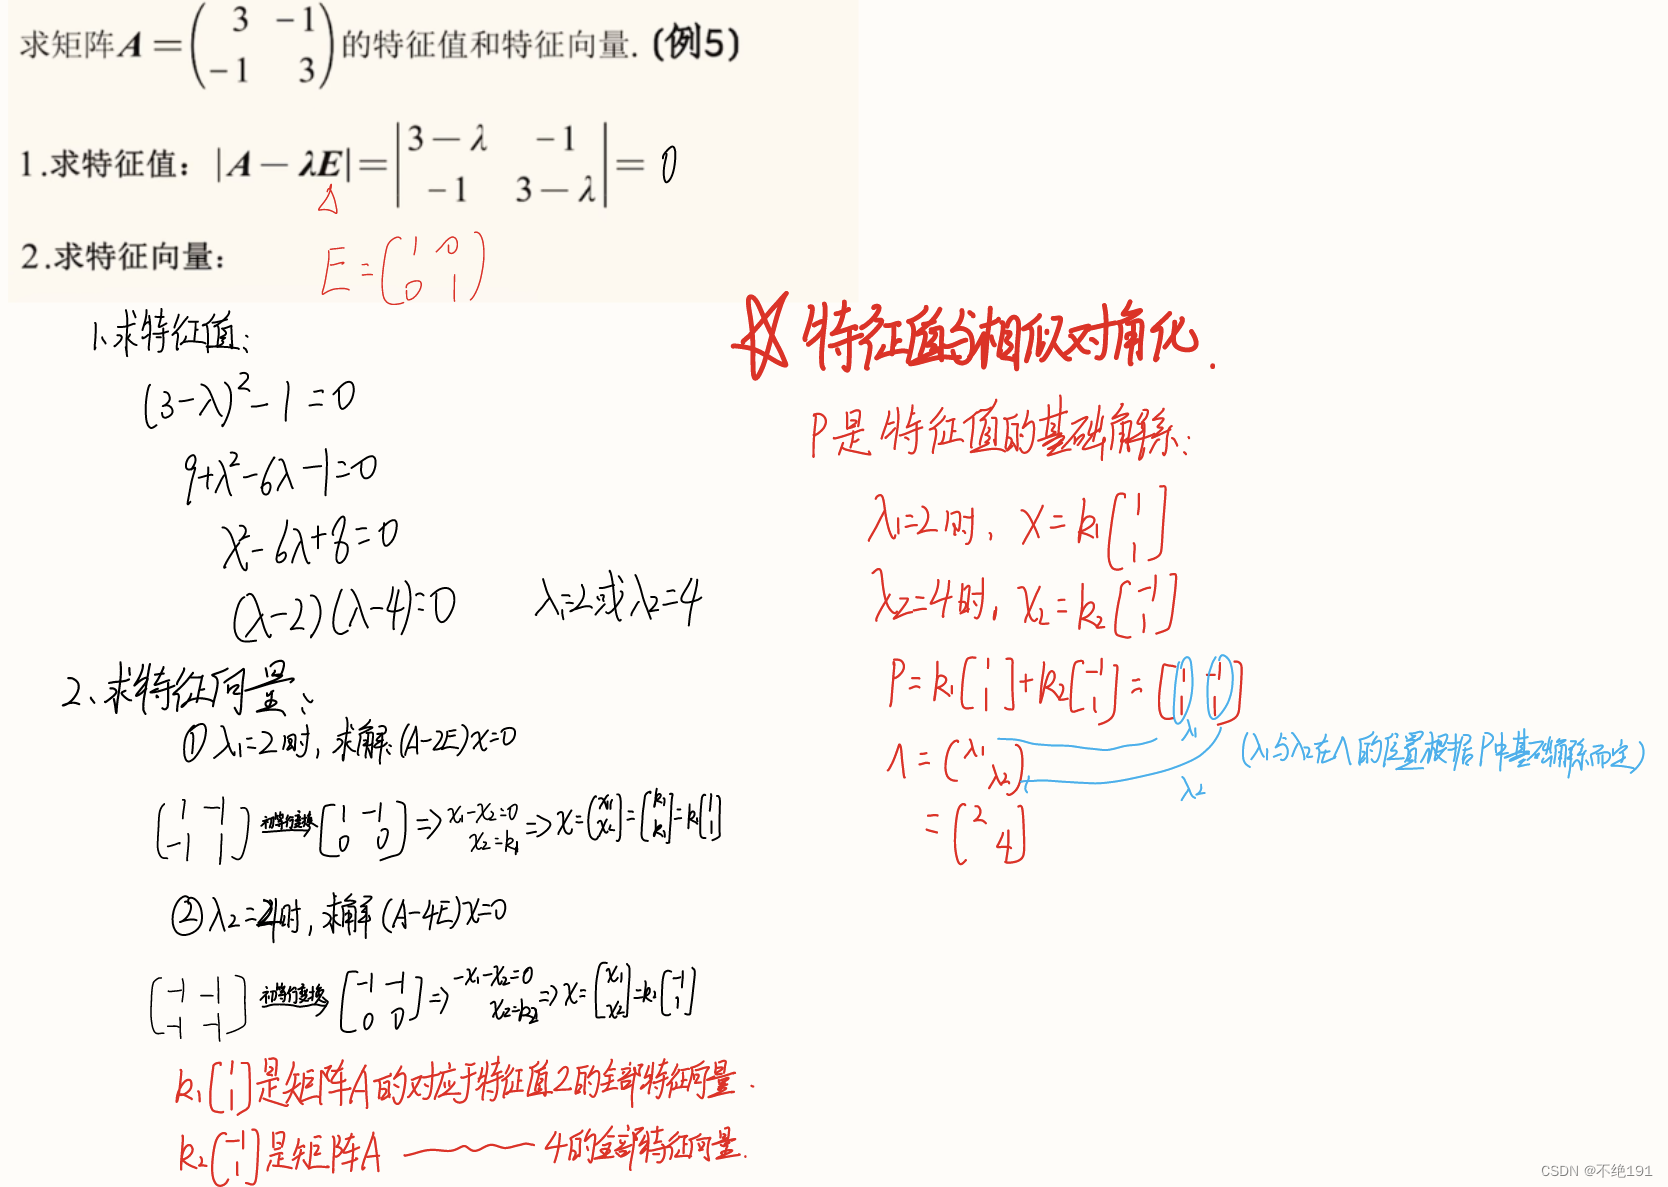 求矩阵A = ( 3 -1 ; -1 3 ) 的特征值和特征向量. (例5)
1.求特征值: |A - λE| = | 3-λ -1 ; -1 3-λ | = 0
2.求特征向量:
E = ( 1 0 ; 0 1 )
1.求特征值:
(3-λ)² - 1 = 0
9+λ²-6λ-1=0
λ²-6λ+8=0
(λ-2)(λ-4)=0 λ₁=2或λ₂=4
2、求特征向量:
① λ₁=2时, 求解:(A-2E)x=0
( 1 -1 ; -1 1 ) 初等行变换 [ 1 -1 ; 0 0 ] => x₁-x₂=0 x₂=k₁ => x = ( x₁ ; x₂ ) = [ k₁ ; k₁ ] = k₁[ 1 ; 1 ]
② λ₂=4时, 求解 (A-4E)x=0
[ -1 -1 ; -1 -1 ] 初等行变换 [ -1 -1 ; 0 0 ] => -x₁-x₂=0 x₂=k₂ => x = [ x₁ ; x₂ ] = k₂[ -1 ; 1 ]
k₁[ 1 ; 1 ]是矩阵A的对应于特征值2的全部特征向量.
k₂[ -1 ; 1 ]是矩阵A 4的全部特征向量.
特征值与相似对角化.
P是特征值的基础解系:
λ₁=2时, x = k₁[ 1 ; 1 ]
λ₂=4时, x₂ = k₂[ -1 ; 1 ]
P = k₁[ 1 ; 1 ] + k₂[ -1 ; 1 ] = [ 1 -1 ; 1 1 ]
λ₁
Λ = ( λ₁ λ₂ )
(λ₁与λ₂在Λ的位置根据P中基础解系而定)
λ₂
= [ 2 4 ]
CSDN @不绝191